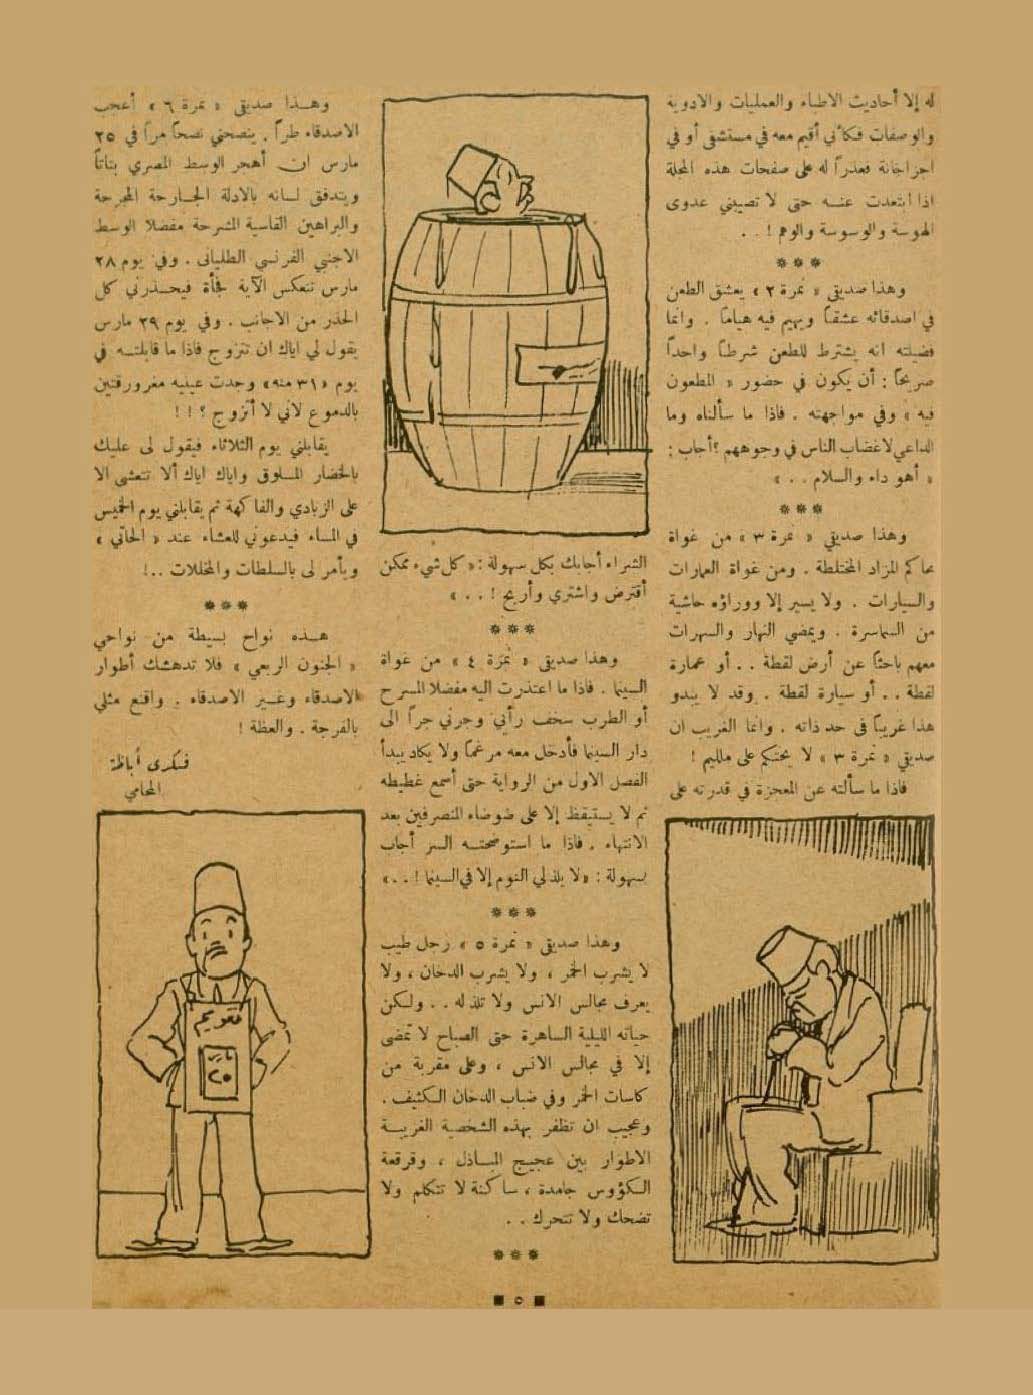 له إلا أحاديث الاطباء والعمليات والادوية
والوصفات فكأني أقيم معه في مستشفى أو في
اجزاخانة فعذراً له على صفحات هذه المجلة
اذا ابتعدت عنه حتى لا تصيبني عدوى
الهوسة والوسوسة والوهم ! . .
***
وهذا صديقي « نمرة ٢ » يعشق الطعن
في اصدقائه عشقاً ويهيم فيه هياماً . وانما
فضيلته انه يشترط للطعن شرطاً واحداً
صريحاً : أن يكون في حضور « المطعون
فيه » وفي مواجهته . فاذا ما سألناه وما
الداعي لاغضاب الناس في وجوههم ؟ أجاب :
« أهو داء والسلام . . »
***
وهذا صديقي « نمرة ٣ » من غواة
محاكم المزاد المختلطة . ومن غواة العمارات
والسيارات . ولا يسير إلا ووراؤه حاشية
من السماسرة . ويمضي النهار والسهرات
معهم باحثاً عن أرض لقطة . . أو عمارة
لقطة . . أو سيارة لقطة . وقد لا يبدو
هذا غريباً في حد ذاته . وانما الغريب ان
صديقي « نمرة ٣ » لا يحتكم على مليم !
فاذا ما سألته عن المعجزة في قدرته على
الشراء أجابك بكل سهولة : « كل شيء ممكن
أقترض واشتري وأربح ! . . »
***
وهذا صديقي « نمرة ٤ » من غواة
السينما . فاذا ما اعتذرت اليه مفضلا المسرح
أو الطرب سخف رأيي وجرني جراً الى
دار السينما فأدخل معه مرغماً ولا يكاد يبدأ
الفصل الاول من الرواية حتى أسمع غطيطه
ثم لا يستيقظ إلا على ضوضاء المنصرفين بعد
الانتهاء . فاذا ما استوضحته السر أجاب
بسهولة : « لا يلذلي النوم إلا في السينما ! . . »
***
وهذا صديقي « نمرة ٥ » رجل طيب
لا يشرب الخمر ، ولا يشرب الدخان ، ولا
يعرف مجالس الانس ولا تلذ له . . ولكن
حياته الليلية الساهرة حتى الصباح لا تمضى
إلا في مجالس الانس ، وعلى مقربة من
كاسات الخمر وفي ضباب الدخان الكثيف .
وعجيب ان تظفر بهذه الشخصية الغريبة
الاطوار بين عجيج المباذل ، وقرقعة
الكؤوس جامدة ، ساكنة لا تتكلم ولا
تضحك ولا تتحرك . .
***
وهذا صديقي « نمرة ٦ » أعجب
الاصدقاء طراً . ينصحني نصحاً مراً في ٢٥
مارس ان أهجر الوسط المصري بتاتاً
ويتدفق لسانه بالادلة الجارحة المجرحة
والبراهين القاسية المشرحة مفضلا الوسط
الاجنبي الفرنسي الطلياني . وفي يوم ٢٨
مارس تنعكس الآية فجأة فيحذرني كل
الحذر من الاجانب . وفي يوم ٢٩ مارس
يقول لي اياك ان تتزوج فاذا ما قابلته في
يوم « ٣١ منه » وجدت عينيه مغرورقتين
بالدموع لاني لا أتزوج ؟ ! !
يقابلني يوم الثلاثاء فيقول لى عليك
بالخضار المسلوق واياك اياك ألا تتعشى الا
على الزبادي والفاكهة ثم يقابلني يوم الخميس
في المساء فيدعوني للعشاء عند « الحاتي »
ويأمر لى بالسلطات والمخللات ..!
***
هذه نواح بسيطة من نواحي
« الجنون الربعي » فلا تدهشك أطوار
الاصدقاء وغير الاصدقاء . واقنع مثلي
بالفرجة . والعظة !
فكرى أباظة
المحامي
تقويم
مارس
٢٥
■ ٥ ■